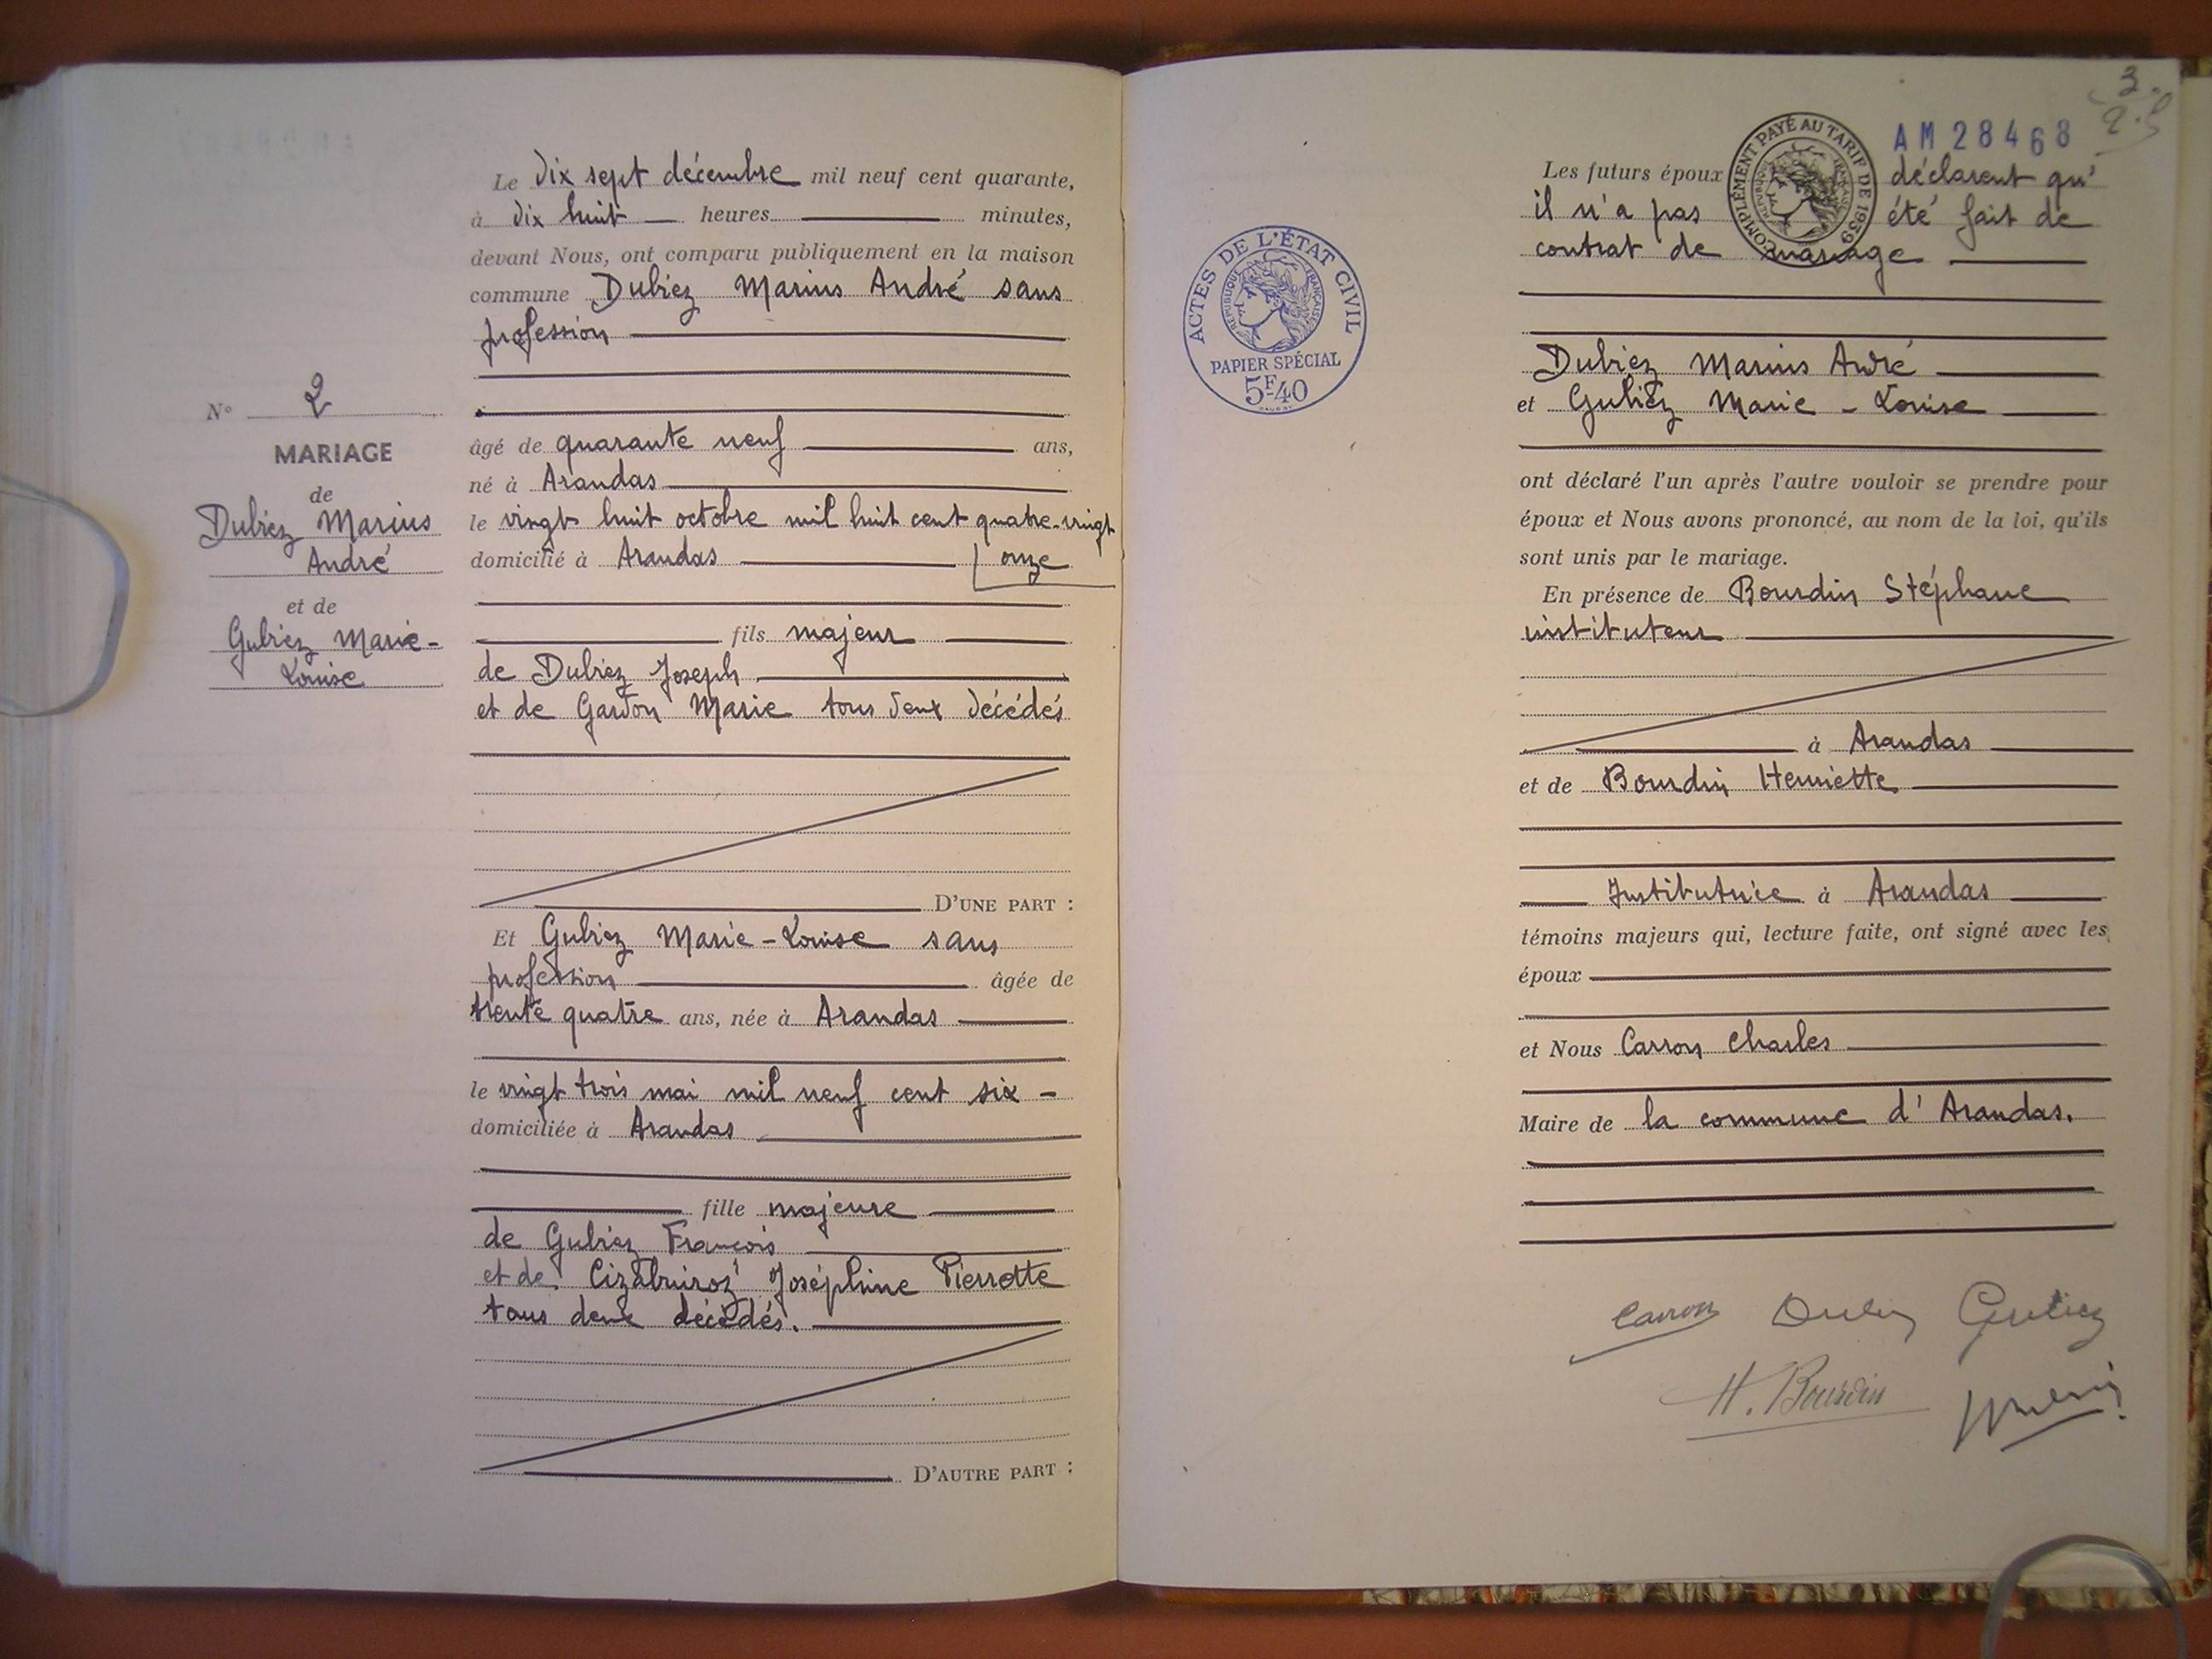 Le dix sept décembre mil neuf cent quarante,
à dix huit heures minutes,
devant Nous, ont comparu publiquement en la maison
commune Dubiez Marius André sans
profession
N° 2
MARIAGE
de
Dubiez Marius
André
et de
Gubiez Marie-
Louise
âgé de quarante neuf ans,
né à Arandas
le vingt huit octobre mil huit cent quatre-vingt
domicilié à Arandas onze
fils majeur
de Dubiez Joseph
et de Gardon Marie tous deux décédés
D'UNE PART :
Et Gubiez Marie-Louise sans
profession âgée de
trente quatre ans, née à Arandas
le vingt trois mai mil neuf cent six -
domiciliée à Arandas
fille majeure
de Gubiez François
et de Joséphine Pierrette
tous deux décédés.
D'AUTRE PART :
3.
AM 28468
COMPLÉMENT PAYÉ AU TARIF DE 1939
RÉPUBLIQUE FRANÇAISE
Les futurs époux déclarent qu'
il n'a pas été fait de
contrat de mariage
ACTES DE L'ÉTAT CIVIL
RÉPUBLIQUE FRANÇAISE
PAPIER SPÉCIAL
5F40
Dubiez Marius André
et Gubiez Marie - Louise
ont déclaré l'un après l'autre vouloir se prendre pour
époux et Nous avons prononcé, au nom de la loi, qu'ils
sont unis par le mariage.
En présence de Bourdin Stéphane
instituteur
à Arandas
et de Bourdin Henriette
Institutrice à Arandas
témoins majeurs qui, lecture faite, ont signé avec les
époux
et Nous Carron Charles
Maire de la commune d'Arandas.
Carron Dubiez Gubiez
H. Bourdin